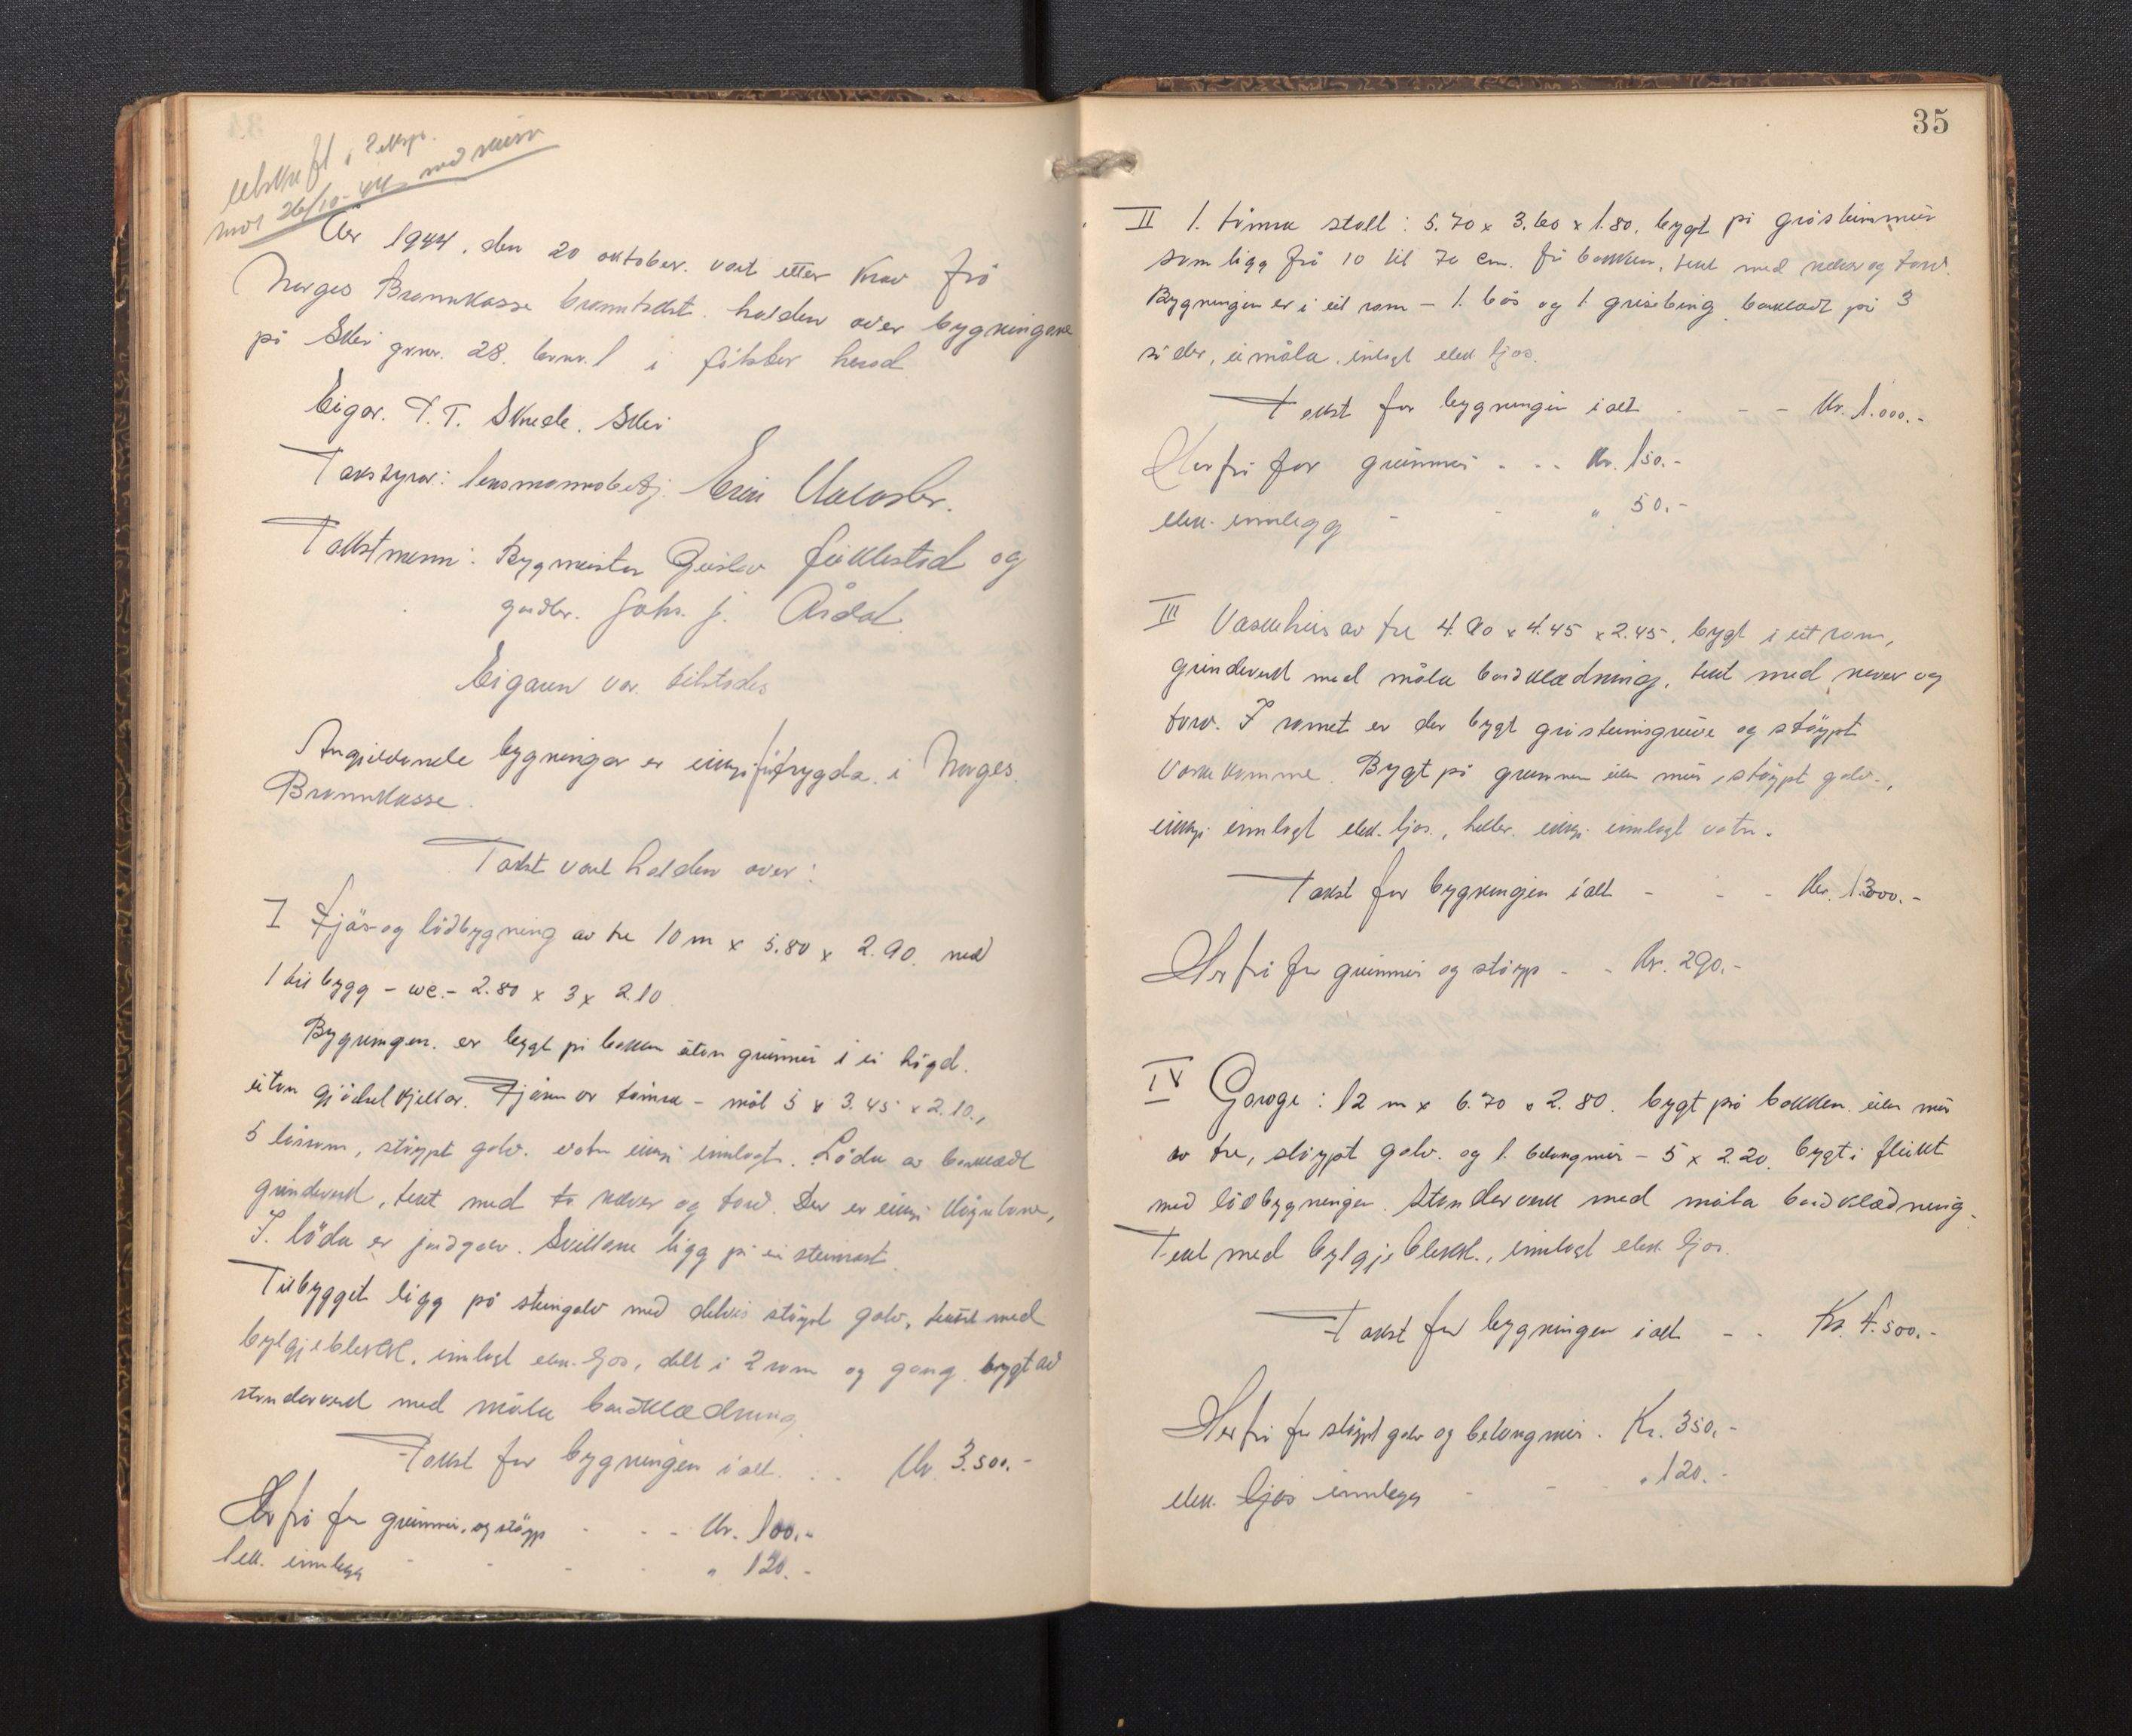 utskrift i 2 eksp.
26/10-44 med
År 1944, den 20 oktober. vart etter krav frå
Norges Brannkasse branntakst. halden over bygningane
på Skei gnr. 28. bnr. 1 i Jølster herad
Eigar. T. T. Skrede. Skei
Takstyrar: lensmannsbetj.
Takstmenn: Bygmeister Gustav og
gardbr. Joh. J. Årdal.
Eigaren var tilstades
Angjeldande bygningar er ikkje fyrr trygda. i Norges.
Brannkasse.
Takst vart halden over:
I Fjös og lödbygning av tre 10 m x 5.80 x 2.90. med
1 tilbygg - wc. - 2.80 x 3 x 2.10.
Bygningen. er bygt på bakken utan grunnmur i ei högd.
utan gjödselkjellar. Fjösen er tömra - mål 5 x 3.45 x 2.10.,
5 båsrom, stöypt golv. vatn ikkje innlagt. Löda av bordkledt
grindverk, tekt med to never og torv. Der er ikkje
I. löda er jordgolv. Svillane ligg på ein steinrast.
Tilbygget ligg på steingolv med delvis stöypt golv, tekt med
bylgjeblekk, innlagt elek. ljos, delt i 2 rom og gang. bygt av
standerverk med måla bordklædning.
Takst for bygningen i alt. . . Kr. 3.500.-
Her frå for grunnmur. og stöyp - - - Kr. 100.-
1 ele. innlegg - - - " 120.-
35
II 1. tömra stall: 5.70 x 3.60 x 1.80. bygt på gråsteinsmur
som ligg frå 10 til 70 cm. frå bakken, tekt med never og torv.
Bygningen er i eit rom - 1. bås og 1. grisebing. bordkledt på 3
sider, umåla. innlagt elek. ljos.
Takst for bygningen i alt - - - Kr. 1.000.-
Herfrå for grunnmur . . . Kr. 150.-
elek. innlegg - - " 50.-
III Vaskehus av tre 4.90 x 4.45 x 2.45, bygt i eit rom,
grindverk med måla bordklædning, tekt med never og
torv. I romet er der bygt gråsteinsgruve og stöypt
Bygt på grunnen uten mur, stöypt golv.,
ikkje innlagt elek. ljos., heller. ikkje innlagt vatn.
Takst for bygningen i alt - - - Kr. 1300.-
Her frå for grunnmur og stöyp - - Kr. 290.-
IV Garage: 12 m x 6.70 x 2.80. bygt på bakken. uten mur
av tre, stöypt golv. og 1. betongmur - 5 x 2.20. bygt i flukt
med lödbygningen. Standerverk med måla bordklædning.
Tekt med bylgjeblekk., innlagt elek. ljos.
Takst for bygningen i alt - - Kr. 4.500.-
Her frå for stöypt golv og betongmur. Kr. 350.-
elek. ljos innlegg - - " 120.-